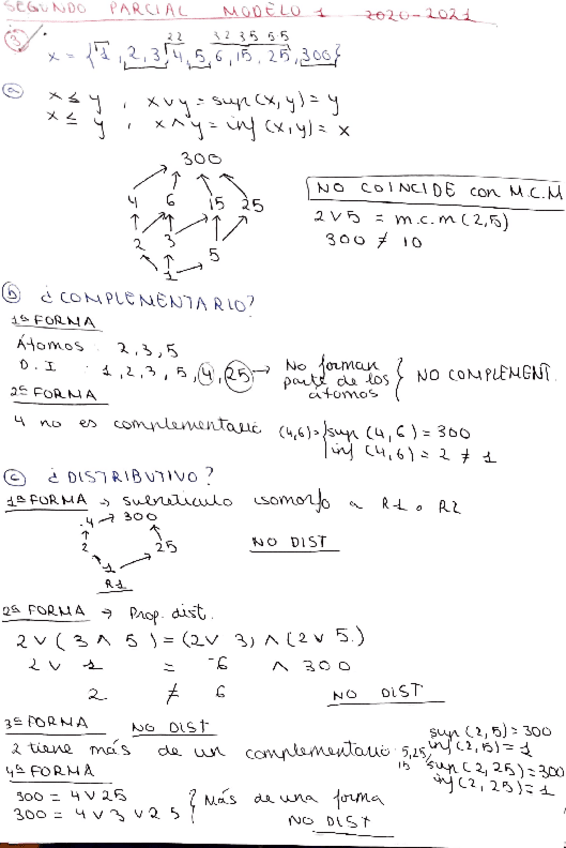 SEGUNDO PARCIAL MODELO 1 2020-2021
③ 22 32 35 55
X = {1, 2, 3, 4, 5, 6, 15, 25, 300}
ⓐ x ≤ y , x ∨ y = sup(x, y) = y
x ≤ y , x ∧ y = inf(x, y) = x
300
4 6 15 25
2 3 5
1
NO COINCIDE con M.C.M
2 ∨ 5 = m.c.m(2,5)
300 ≠ 10
ⓑ ¿COMPLEMENTARIO?
1ª FORMA
Átomos : 2, 3, 5
D. I : 1, 2, 3, 5, 4, 25 → No forman parte de los átomos } NO COMPLEMENT.
2ª FORMA
4 no es complementario (4,6) = { sup (4, 6) = 300
inf (4, 6) = 2 ≠ 1
ⓒ ¿DISTRIBUTIVO?
1ª FORMA → subretículo isomorfo a R1 o R2
4 → 300
2 25
1
R1
NO DIST
2ª FORMA → Prop. dist.
2 ∨ (3 ∧ 5) = (2 ∨ 3) ∧ (2 ∨ 5)
2 ∨ 1 = 6 ∧ 300
2 ≠ 6
NO DIST
3ª FORMA NO DIST
2 tiene más de un complementario : 5, 25, 15
sup (2, 5) = 300
inf (2, 5) = 1
sup (2, 25) = 300
inf (2, 25) = 1
4ª FORMA
300 = 4 ∨ 25
300 = 4 ∨ 3 ∨ 25
} Más de una forma
NO DIST